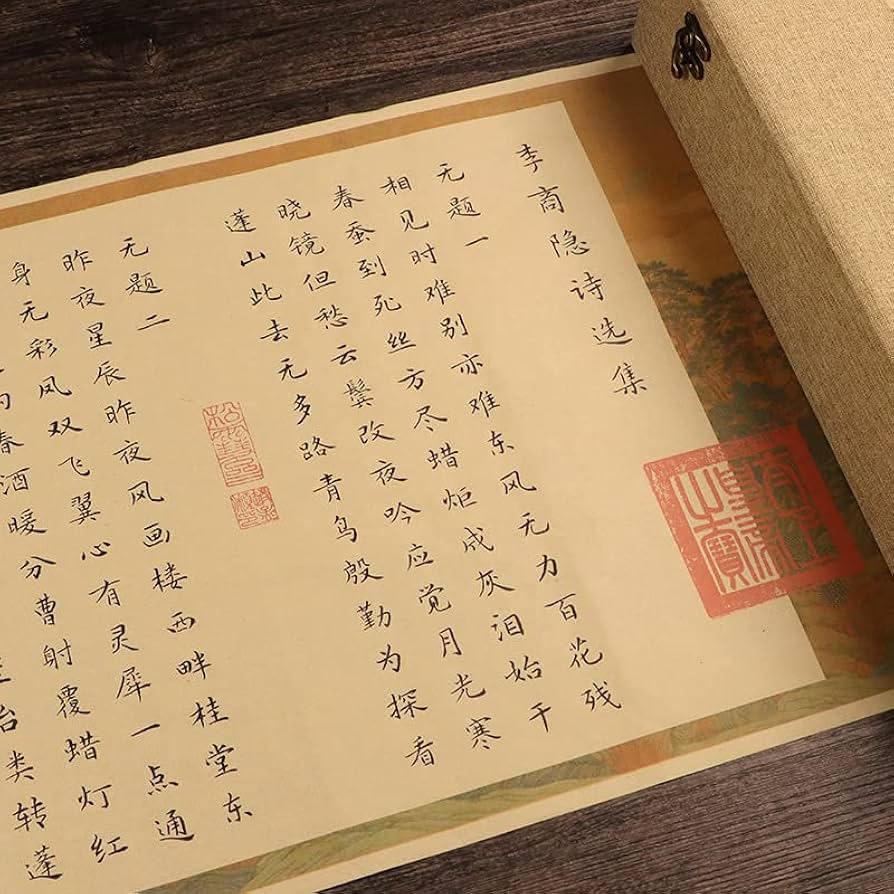 李商隐诗选集
无题一
相见时难别亦难东风无力百花残
春蚕到死丝方尽蜡炬成灰泪始干
晓镜但愁云鬓改夜吟应觉月光寒
蓬山此去无多路青鸟殷勤为探看
无题二
昨夜星辰昨夜风画楼西畔桂堂东
身无彩凤双飞翼心有灵犀一点通
春酒暖分曹射覆蜡灯红
台类转蓬